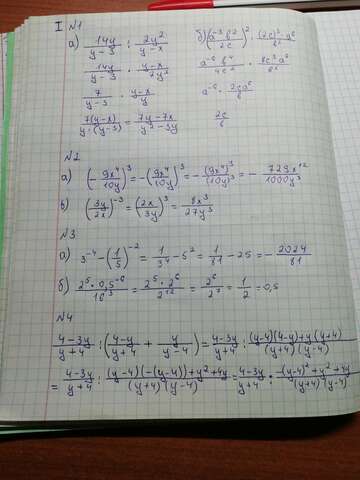 I №1
а) 14y/(y-3) : 2y²/(y-x)
14y/(y-3) · (y-x)/2y²
7/(y-3) · (y-x)/y
7(y-x)/(y·(y-3)) = (7y-7x)/(y²-3y)
a⁻⁶ b⁴/4c²
2c/b
№2
а) (-9x⁴/10y)³ = -(9x⁴/10y)³ = -(9x⁴)³/(10y)³ = -729x¹²/1000y³
в) (3y/2x)⁻³ = (2x/3y)³ = 8x³/27y³
№3
а) 3⁻⁴ - (1/5)⁻² = 1/3⁴ - 5² = 1/81 - 25 = -2024/81
б) 2⁵ · 0,5⁻⁶/16³ = 2⁵ · 2⁶/2¹² = 1/2 = 0,5
№4
(4-3y)/(y+4) : ((4-y)/(y+4) + y/(y-4)) = (4-3y)/(y+4) : ((y-4)(4-y)+y(y+4))/((y+4)(y-4))
= (4-3y)/(y+4) : ((y-4)(-(y-4))+y²+4y)/((y+4)(y-4)) = (4-3y)/(y+4) : (-(y-4)²+y²+4y)/((y+4)(y-4))